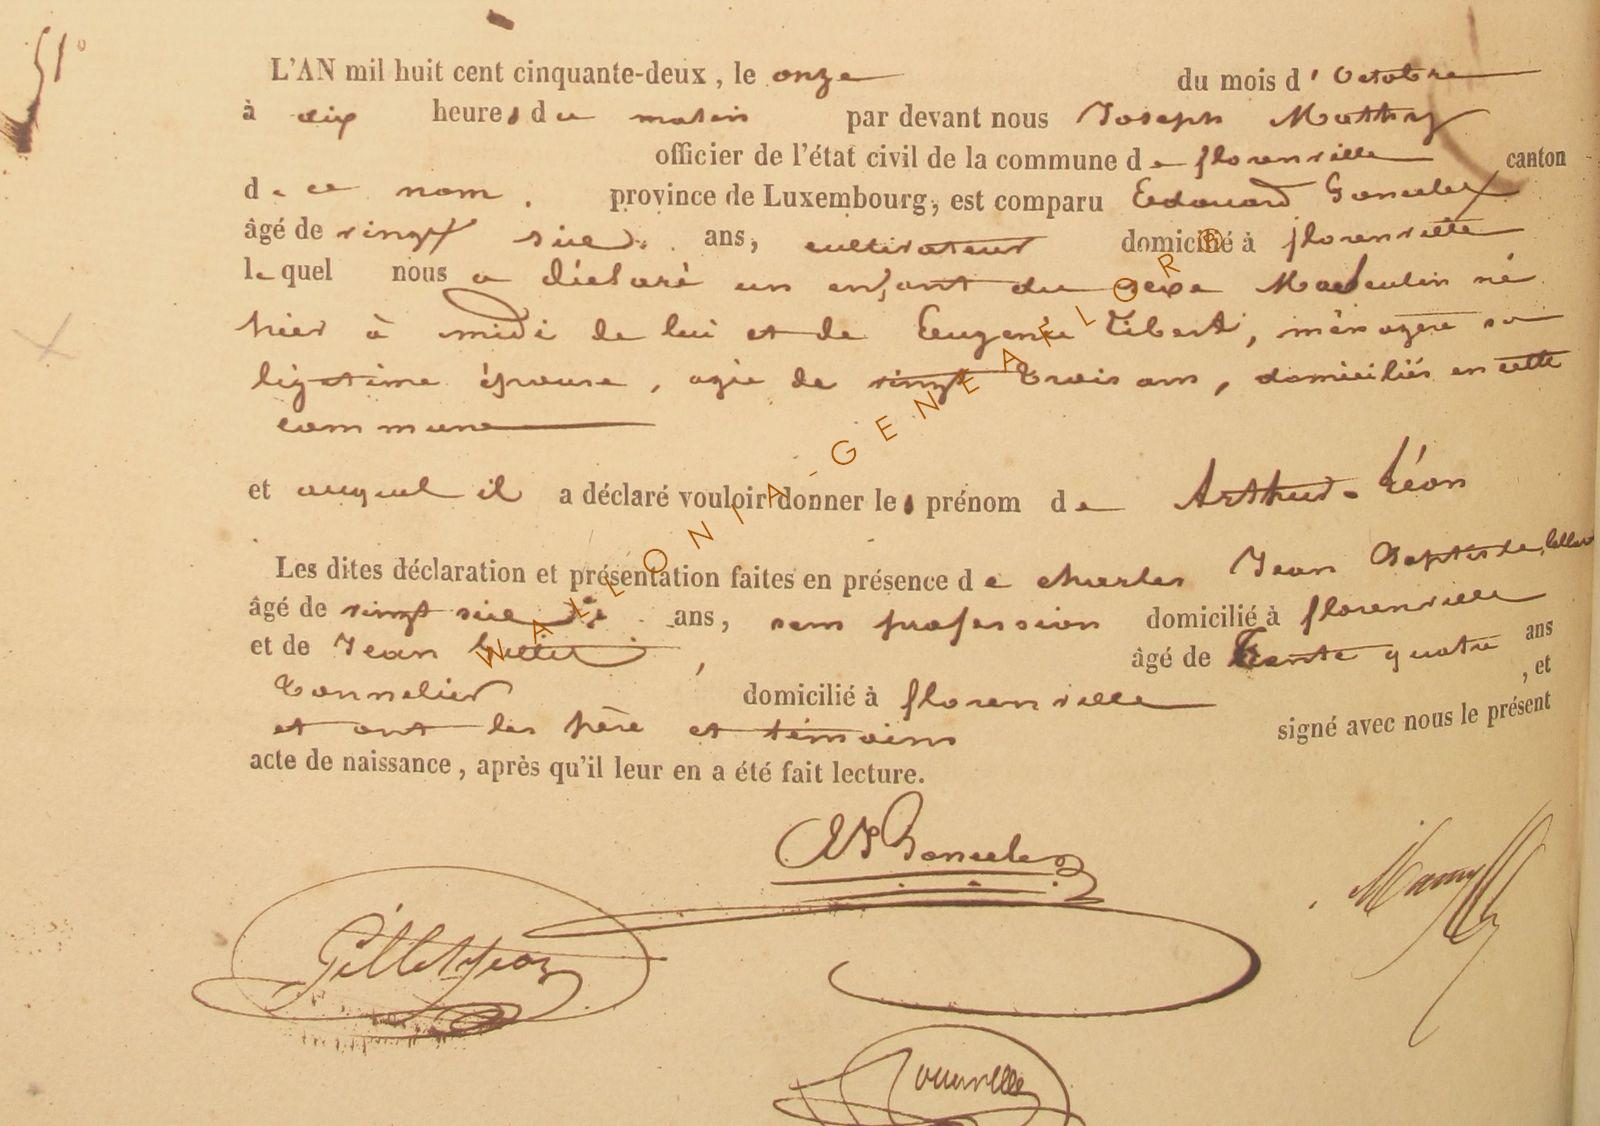 51°
L'AN mil huit cent cinquante-deux, le onze du mois d'Octobre
à dix heures du matin par devant nous Joseph Mathey
officier de l'état civil de la commune de florenville canton
de ce nom. province de Luxembourg, est comparu Edouard
âgé de vingt six ans, cultivateur domicilié à florenville
lequel nous a déclaré un enfant du sexe Masculin né
hier à midi de lui et de Eugenie Tibert, ménagère sa
ligitime épouse, agée de vingt trois ans, domiciliés en cette
commune
et auquel il a déclaré vouloir donner les prénom de Arthur-Léon
Les dites déclaration et présentation faites en présence de charles Jean Baptiste
âgé de vingt six ans, sans profession domicilié à florenville
et de Jean Gillet, âgé de trente quatre ans
Tonnelier domicilié à florenville, et
et ont les père et témoins signé avec nous le présent
acte de naissance, après qu'il leur en a été fait lecture.
Gillet Jean
WALLONIA-GENEALORE